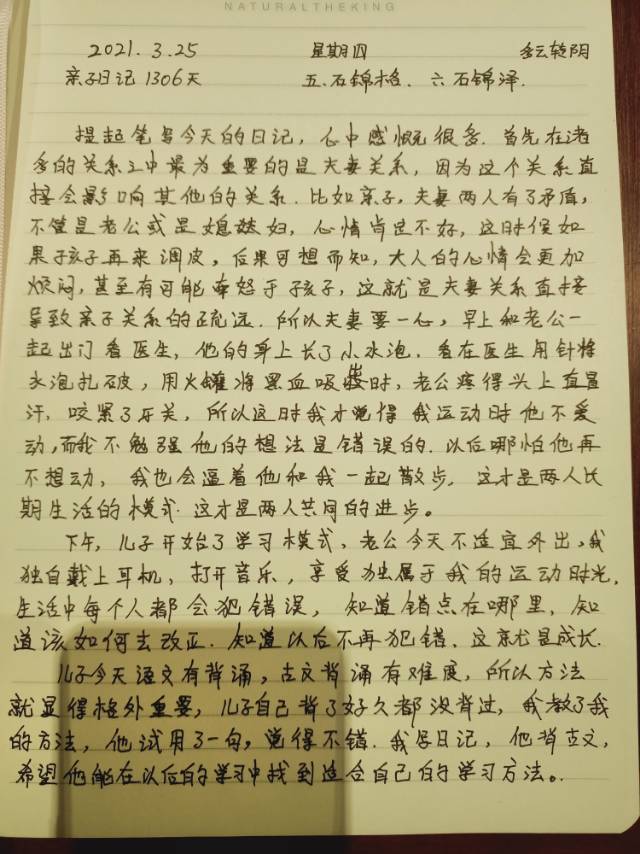 NATURALTHEKING
2021.3.25 星期四 多云转阴
亲子日记1306天 五.石锦格. 六石锦泽.
提起笔写今天的日记，心中感慨很多。首先在诸
多的关系之中最为重要的是夫妻关系，因为这个关系直
接会影响其他的关系。比如亲子，夫妻两人有了矛盾，
不管是老公或是媳妇，心情肯定不好，这时候如
果孩子再来调皮，后果可想而知，大人的心情会更加
烦闷，甚至有可能牵怒于孩子，这就是夫妻关系直接
导致亲子关系的疏远。所以夫妻要一心，早上和老公一
起出门看医生，他的身上长了小水泡。看在医生用针将
水泡扎破，用火罐将黑血吸时，老公疼得头上直冒
汗，咬累了牙关，所以这时我才觉得我运动时他不爱
动，而我不勉强他的想法是错误的。以后哪怕他再
不想动，我也会逼着他和我一起散步。这才是两人长
期生活的模式。这才是两人共同的进步。
下午，儿子开始了学习模式，老公今天不适宜外出，我
独自戴上耳机，打开音乐，享受独属于我的运动时光，
生活中每个人都会犯错误，知道错点在哪里，知
道该如何去改正。知道以后不再犯错，这就是成长。
儿子今天语文有背诵，古文背诵有难度，所以方法
就显得格外重要，儿子自己背了好久都没背过，我教了我
的方法，他试用了一句，觉得不错。我写日记，他背古文，
希望他能在以后的学习中找到适合自己的学习方法。